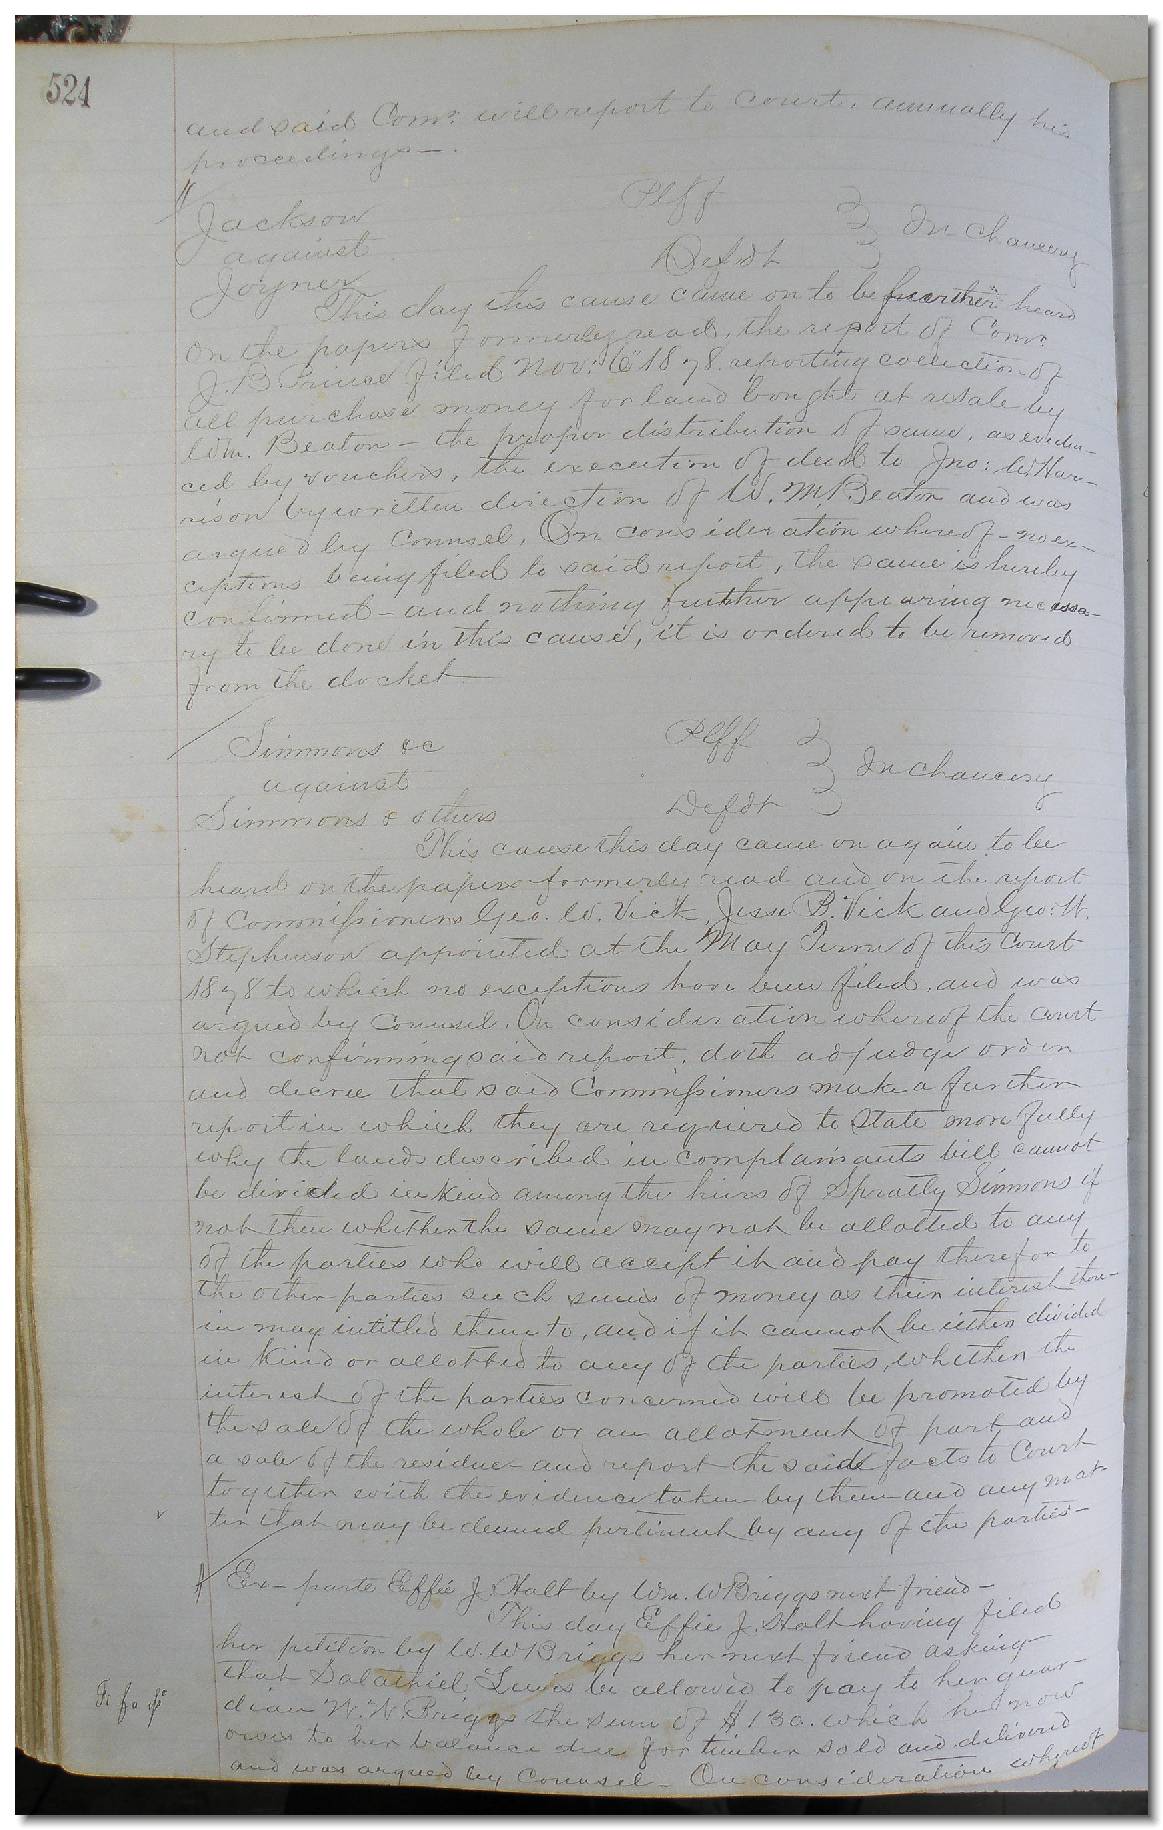 524
and said Comr. will report to court, annually his
proceedings—.
Jackson Plff
against In Chancery
Joyner Defdt
This day this cause came on to be further heard
on the papers formerly read, the report of Comr.
J. B. Prince filed Nov: 6 1878 reporting collection of
all purchase money for land bought at resale by
Wm. Beaton – the proper distribution of same, as eviden-
ced by vouchers, the execution of deed to Jno: W Har-
rison by written direction of W. M. Beaton and was
argued by Counsel, On consideration whereof – no ex-
ceptions being filed to said report, the same is hereby
confirmed – and nothing further appearing necessa-
ry to be done in this cause, it is ordered to be removed
from the docket
Simmons &c Plff
against In Chancery
Simmons & others Defdt
This cause this day came on again to be
heard on the papers formerly read and on the report
of Commissioners Geo. W. Vick, Jesse B. Vick and Geo: W.
Stephenson appointed at the May Term of this Court
1878 to which no exceptions have been filed, and was
argued by Counsel. On consideration whereof the court
not confirming said report, doth adjudge order
and decree that said Commissioners make a further
report in which they are required to State more fully
why the lands described in complainants bill cannot
be divided in kind among the heirs of Spratly Simmons if
not then whether the same may not be allotted to any
of the parties who will accept it and pay therefor to
the other parties such sums of money as their interest there-
in may intitled them to, and if it cannot be either divided
in kind or allotted to any of the parties, whether the
interest of the parties concerned will be promoted by
the sale of the whole or an allotment of part and
a sale of the residue and report the said facts to Court
together with the evidence taken by them and any mat-
ter that may be deemed pertinent by any of the parties–
Ex– parte Effie J. Holt by Wm. W Briggs next friend–
This day Effie J. Holt having filed
her petition by W. W Briggs her next friend asking
that Salathiel Lewis be allowed to pay to her guar-
dian W. W. Briggs the sum of $130. which he now
owes to her balance due for timber sold and delivered
and was argued by Counsel – On consideration whereof